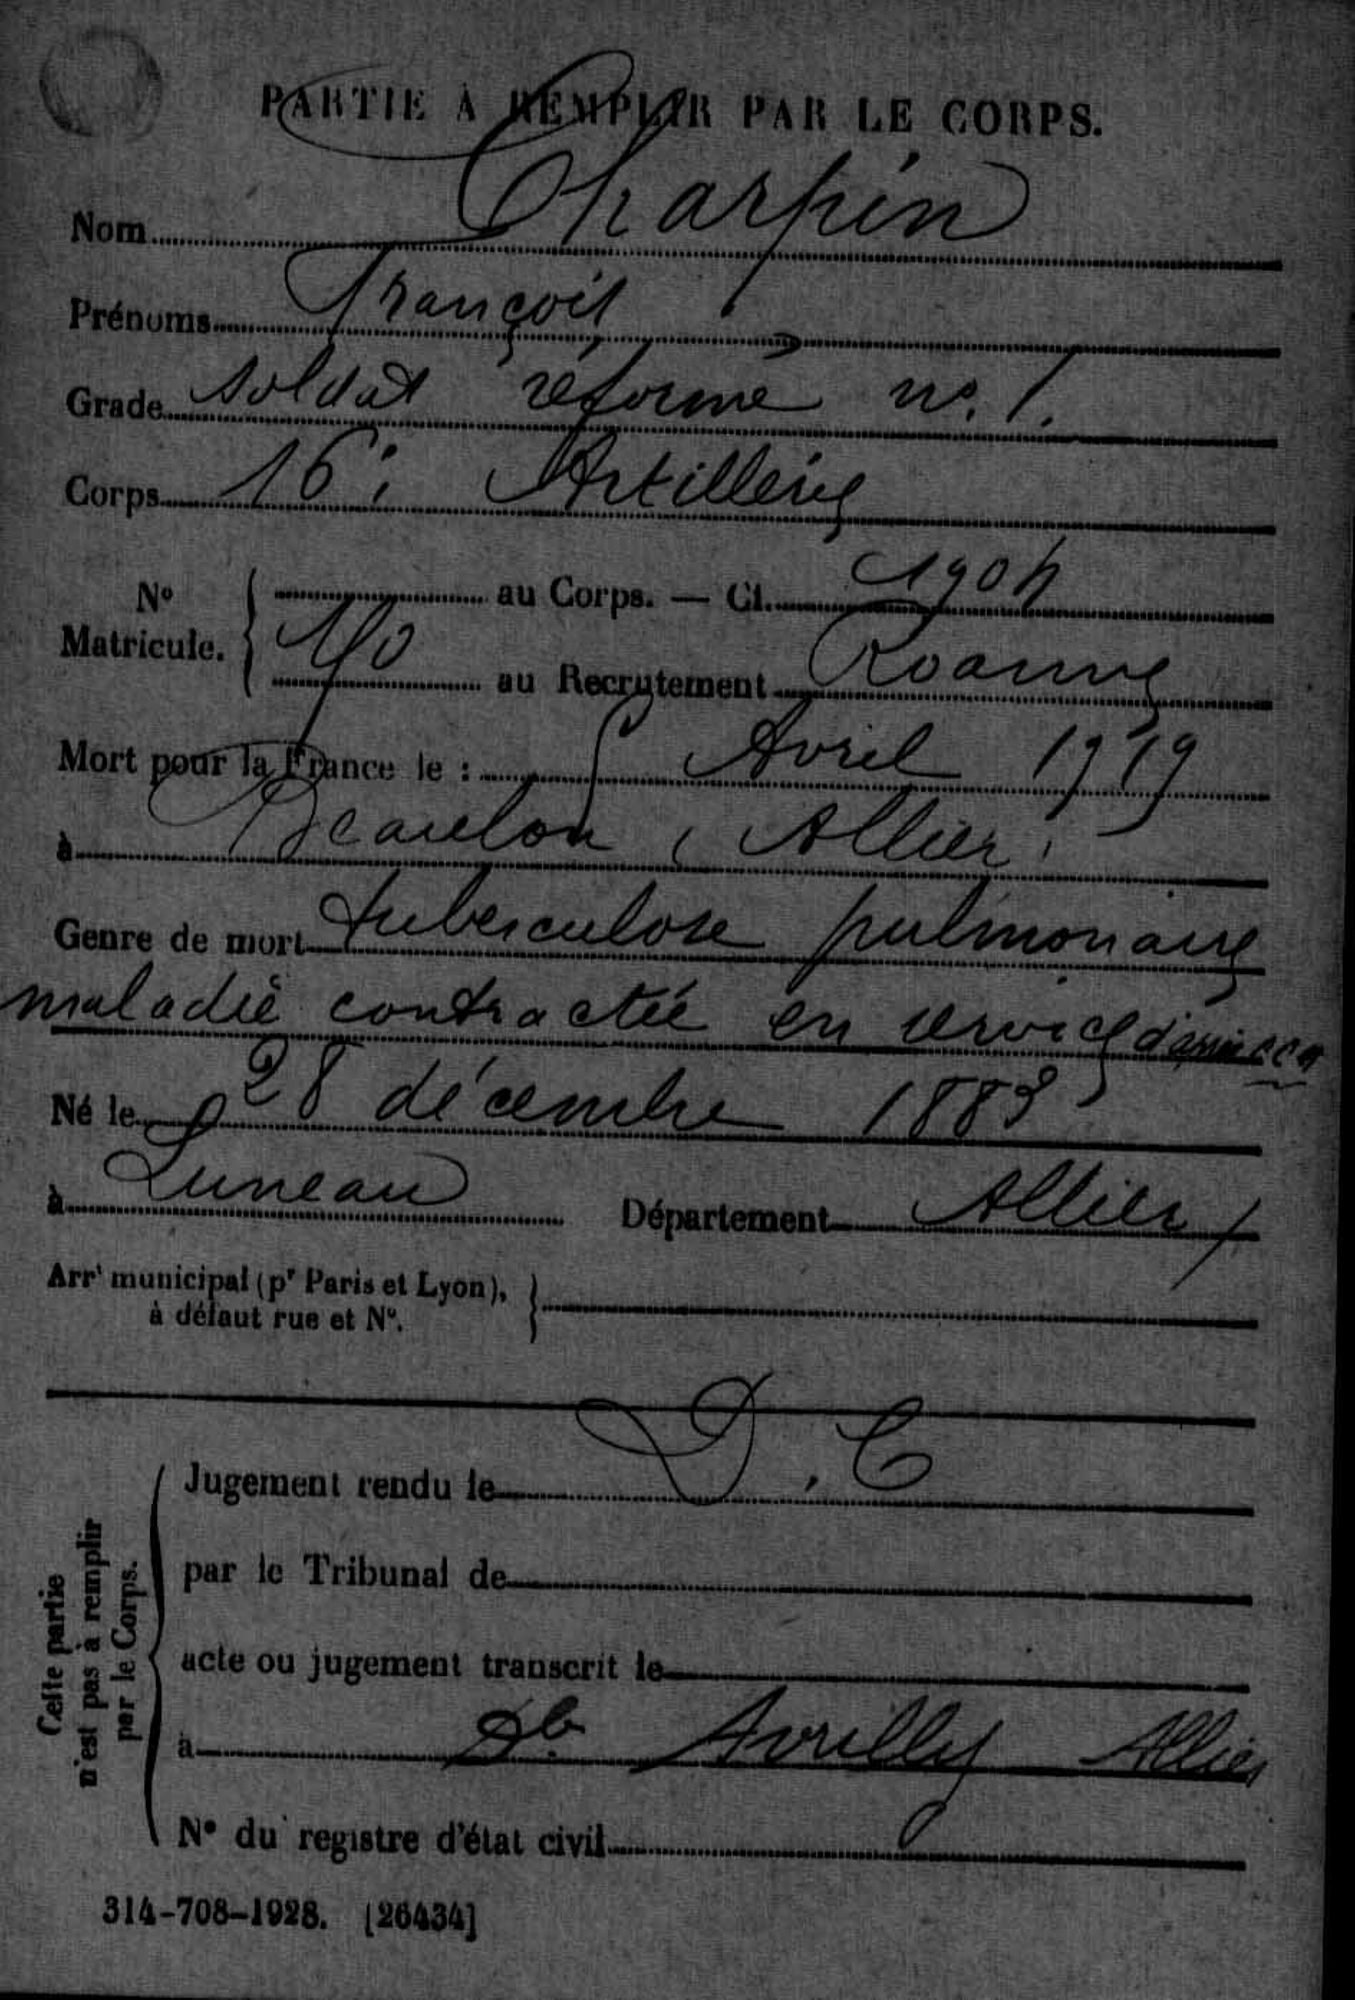 PARTIE À REMPLIR PAR LE CORPS.
Nom Charpin
Prénoms François
Grade soldat réformé no. 1.
Corps 16e Artillerie
No Matricule. { au Corps. — Cl. 1904
au Recrutement Roanne
Mort pour la France le : Avril 1919
à Beaulon (Allier)
Genre de mort tuberculose pulmonaire
maladie contractée en service
Né le 28 décembre 1883
à Luneau Département Allier
Arrt municipal (pr Paris et Lyon), à défaut rue et No.
D. C
Jugement rendu le
par le Tribunal de
acte ou jugement transcrit le
à Avrilly Allier
No du registre d'état civil
Cette partie n'est pas à remplir par le Corps.
314-708-1928. [26434]